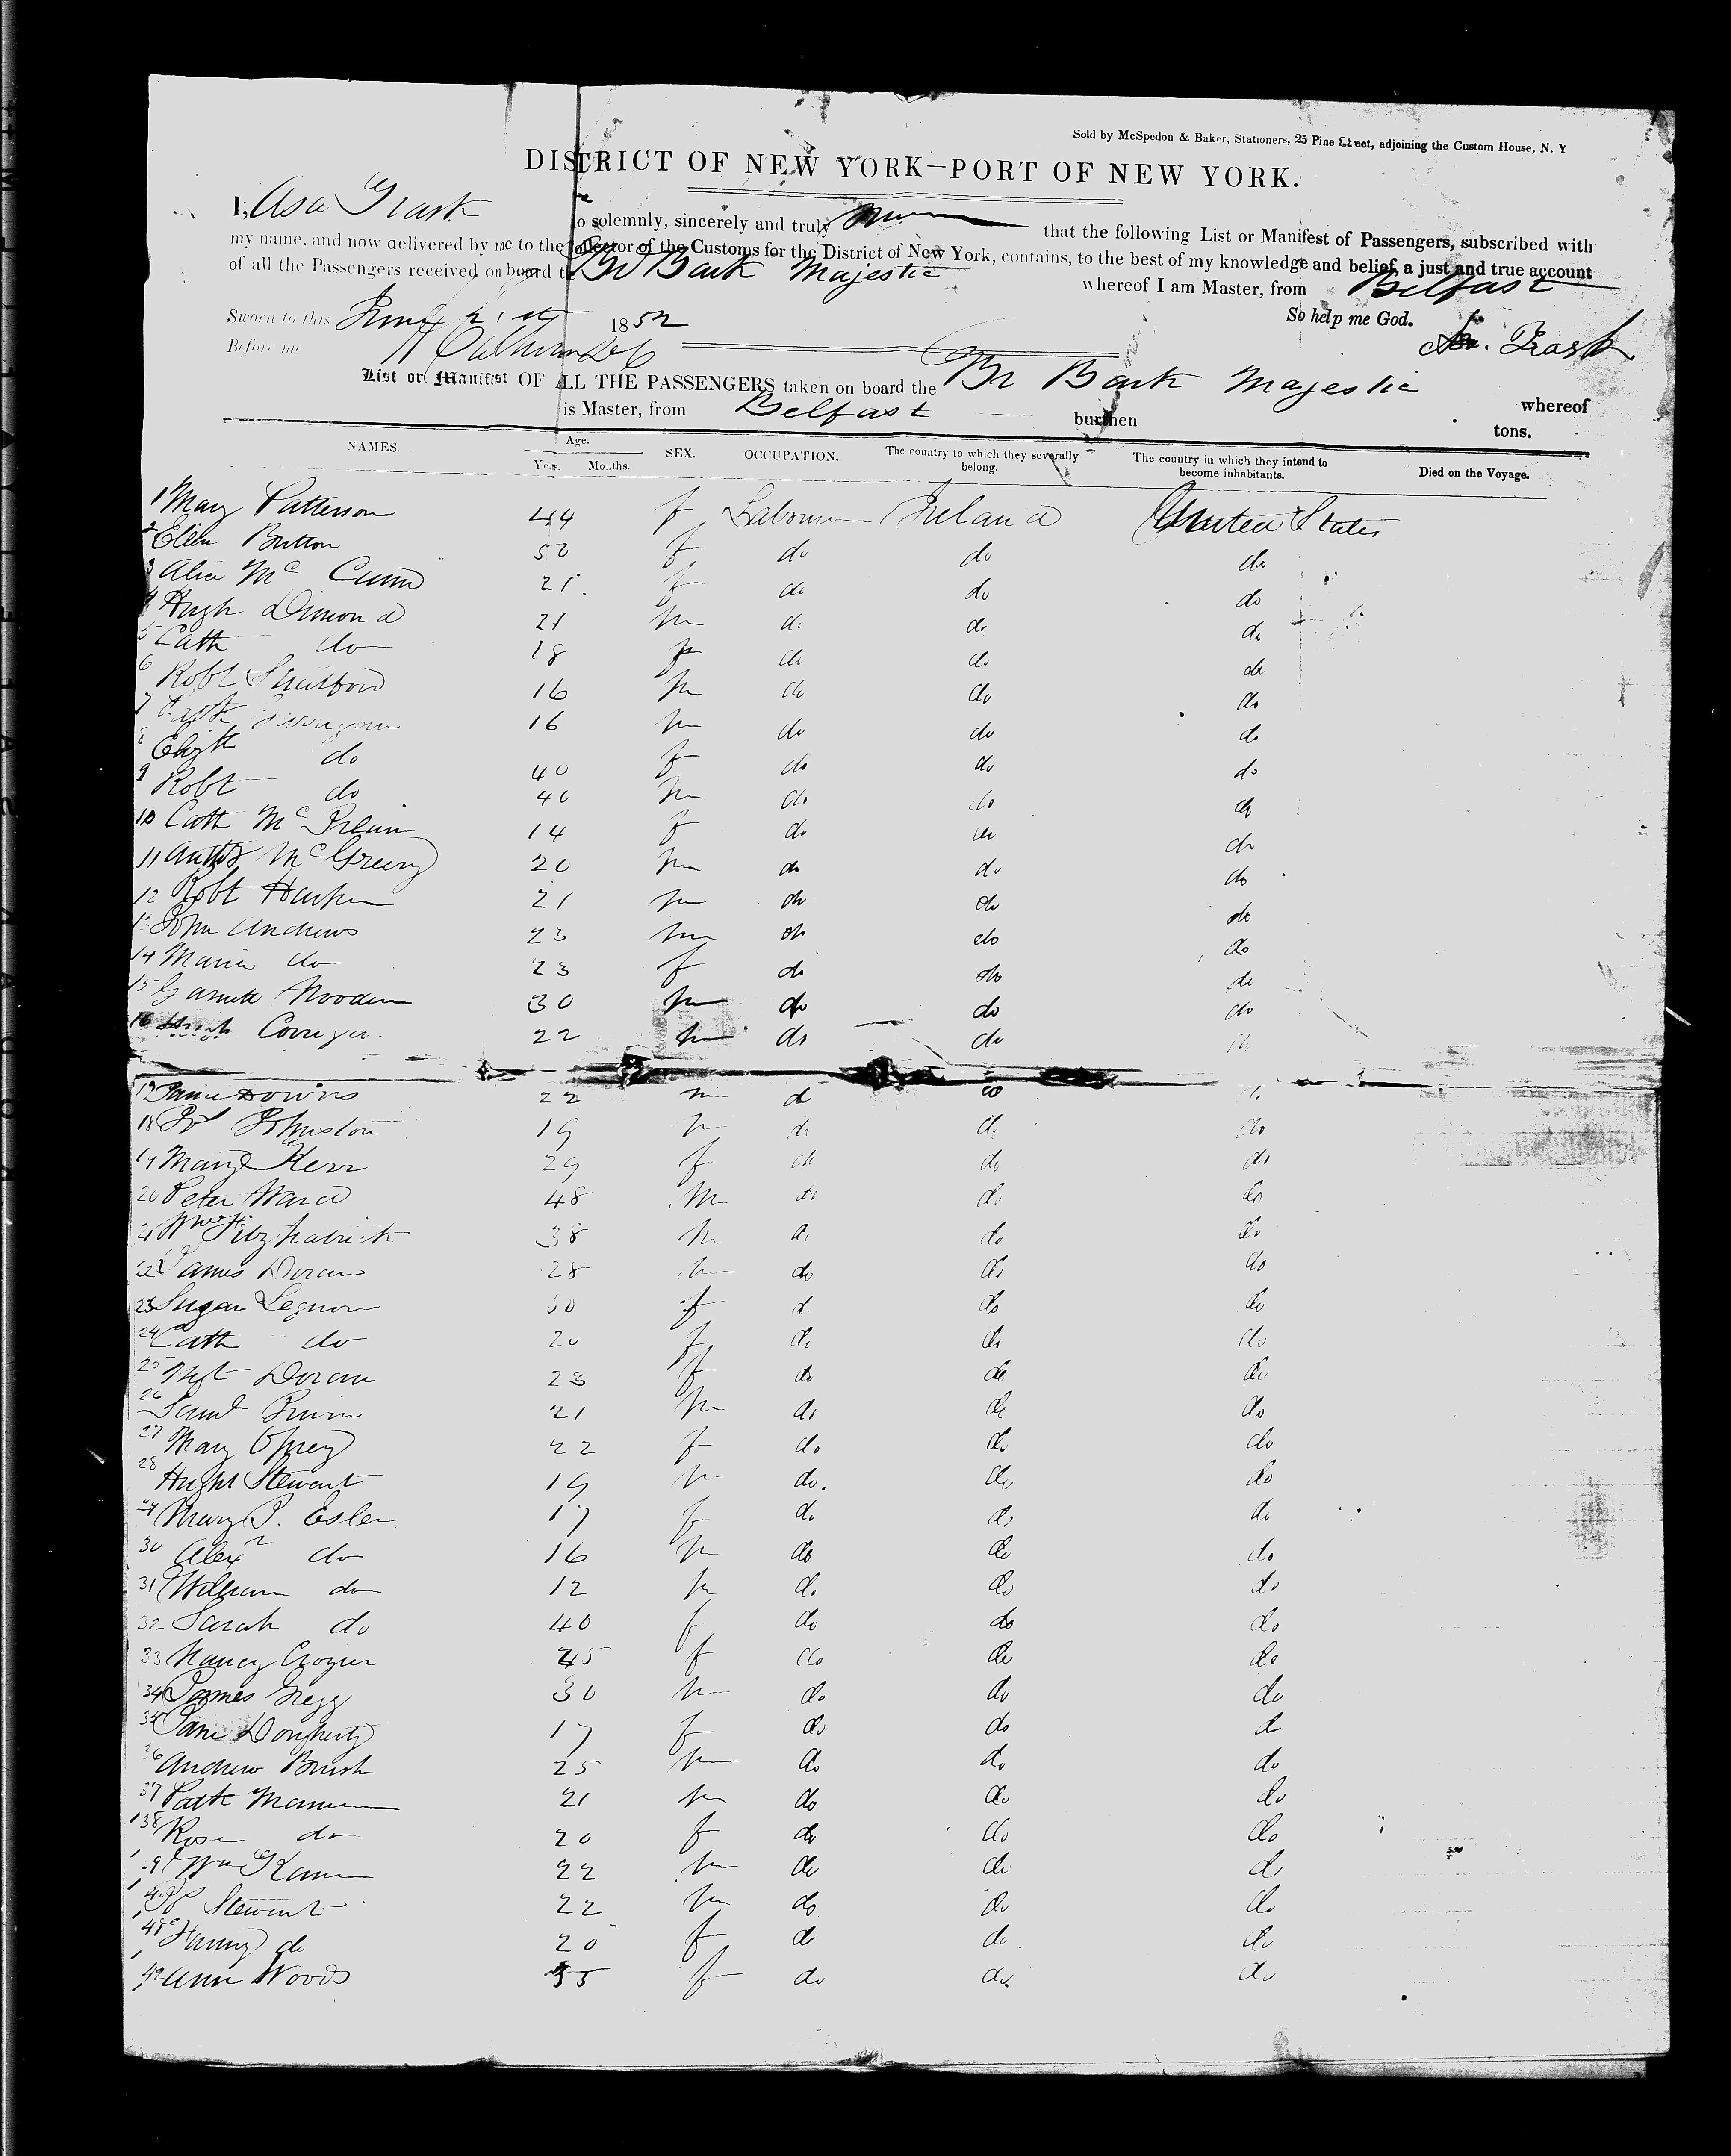 Sold by McSpedon & Baker, Stationers, 25 Pine Street, adjoining the Custom House, N. Y
DISTRICT OF NEW YORK—PORT OF NEW YORK.
I, Asa Trask do solemnly, sincerely and truly that the following List or Manifest of Passengers, subscribed with
my name, and now delivered by me to the Collector of the Customs for the District of New York, contains, to the best of my knowledge and belief, a just and true account
of all the Passengers received on board the Br Bark Majestic whereof I am Master, from Belfast
Sworn to this 21 1852 So help me God. Trask
Before me
List or Manifest OF ALL THE PASSENGERS taken on board the Br Bark Majestic whereof
is Master, from Belfast burthen tons.
NAMES. Age. SEX. OCCUPATION. The country to which they severally belong. The country in which they intend to become inhabitants. Died on the Voyage.
Years. Months.
1 Mary Patterson 44 f Labourer Ireland United States
2 Ellen Button 50 f do do do
3 Alice Mc Cann 21 f do do do
4 Hugh Dimond 21 m do do do
5 Cath do 18 f do do do
6 Robt 16 m do do do
7 16 m do do do
8 Elizth do 40 f do do do
9 Robt do 40 m do do do
10 Cath Mc 14 f do do do
11 Mc Greevy 20 m do do do
12 Robt Harper 21 m do do do
13 John Andrews 23 m do do do
14 Maria do 23 f do do do
15 30 m do do do
16 Hugh 22 m do do do
17 Downs 22 m do do
18 Johnston 19 m do do do
19 Mary Kerr 29 f do do do
20 Peter Ward 48 m do do do
21 Wm Fitzpatrick 38 m do do do
22 James Doran 28 m do do do
23 f do do do
24 Cath do 20 f do do do
25 Mgt Doran 23 f do do do
26 Saml 21 m do do do
27 Mary 22 f do do do
28 Hugh Stewart 19 m do. do do
29 Mary P. Esler 17 f do do do
30 Alexr do 16 m do do do
31 William do 12 m do do do
32 Sarah do 40 f do do do
33 Nancy Crozier 45 f do do do
34 James Gregg 30 m do do do
35 Jane Dougherty 17 f do do do
36 Andrew Brush 25 m do do do
37 Patk 21 m do do do
38 Rose do 20 f do do do
39 Wm Kane 22 m do do do
40 Stewart 22 m do do do
41 do 20 f do do do
42 Ann Woods 35 f do do do